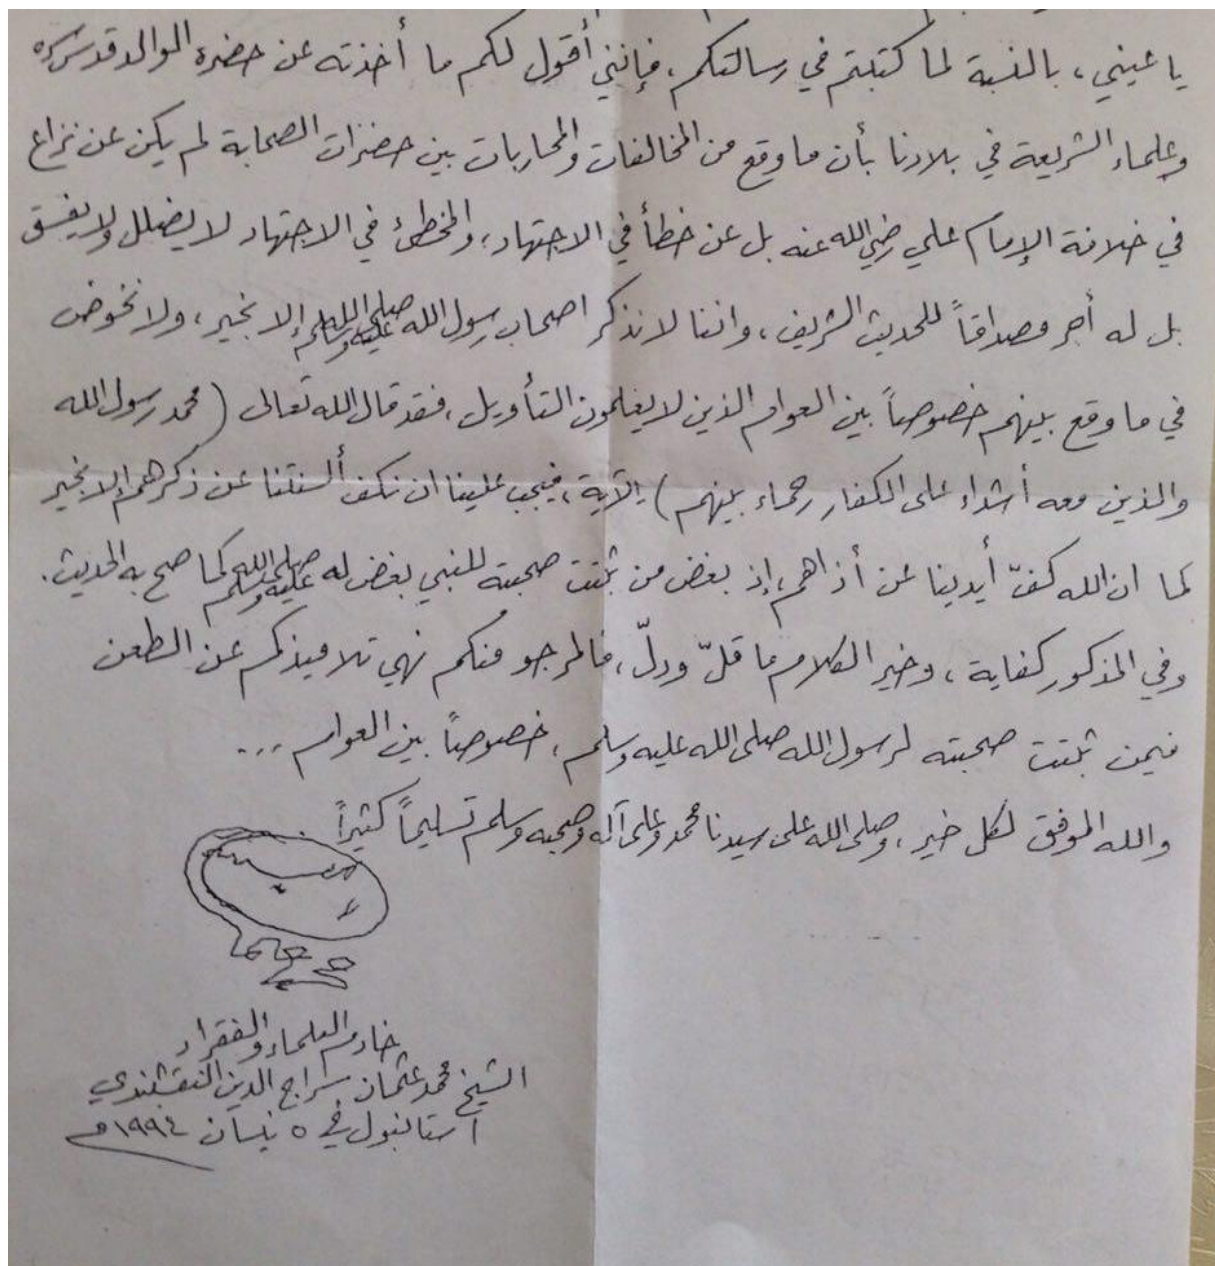 يا عيني، بالنسبة لما كتبتم في رسالتكم، فإنني أقول لكم ما أخذته عن حضرة الوالد قدس سره
وعلماء الشريعة في بلادنا بأن ما وقع من المخالفات والمحاربات بين حضرات الصحابة لم يكن عن نزاع
في خلافة الإمام علي رضي الله عنه بل عن خطأ في الاجتهاد، والمخطئ في الاجتهاد لا يضلل ولا يفسق
بل له أجر مصداقاً للحديث الشريف، واننا لا نذكر اصحاب رسول الله صلى الله عليه وسلم إلا بخير، ولا نخوض
في ما وقع بينهم خصوصاً بين العوام الذين لا يعلمون التأويل، فقد قال الله تعالى (محمد رسول الله
والذين معه أشداء على الكفار رحماء بينهم) الآية، فيجب علينا ان نكف ألسنتنا عن ذكرهم إلا بخير
كما ان الله كفّ أيدينا عن أذاهم، إذ بغض من ثبتت صحبته للنبي بغض له صلى الله عليه وسلم كما صح به الحديث.
وفي المذكور كفاية، وخير الكلام ما قلّ ودلّ، فالمرجو منكم نهي تلاميذكم عن الطعن
فيمن ثبتت صحبته لرسول الله صلى الله عليه وسلم، خصوصاً بين العوام ...
والله الموفق لكل خير، وصلى الله على سيدنا محمد وعلى آله وصحبه وسلم تسليماً كثيراً.
خادم العلماء والفقراء
الشيخ محمد عثمان سراج الدين النقشبندي
استانبول في ٥ نيسان ١٩٩٤م